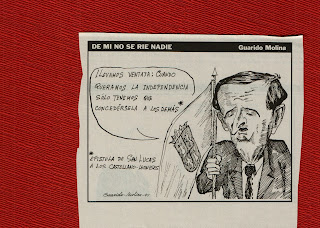 DE MI NO SE RIE NADIE
Guarido Molina
¡LLEVAMOS VENTAJA: CUANDO
QUERAMOS LA INDEPENDENCIA
SÓLO TENEMOS QUE
CONCEDÉRSELA A LOS DEMÁS*
*EPÍSTOLA DE SAN LUCAS
A LOS CASTELLANO-LEONESES
Guarido-Molina-01